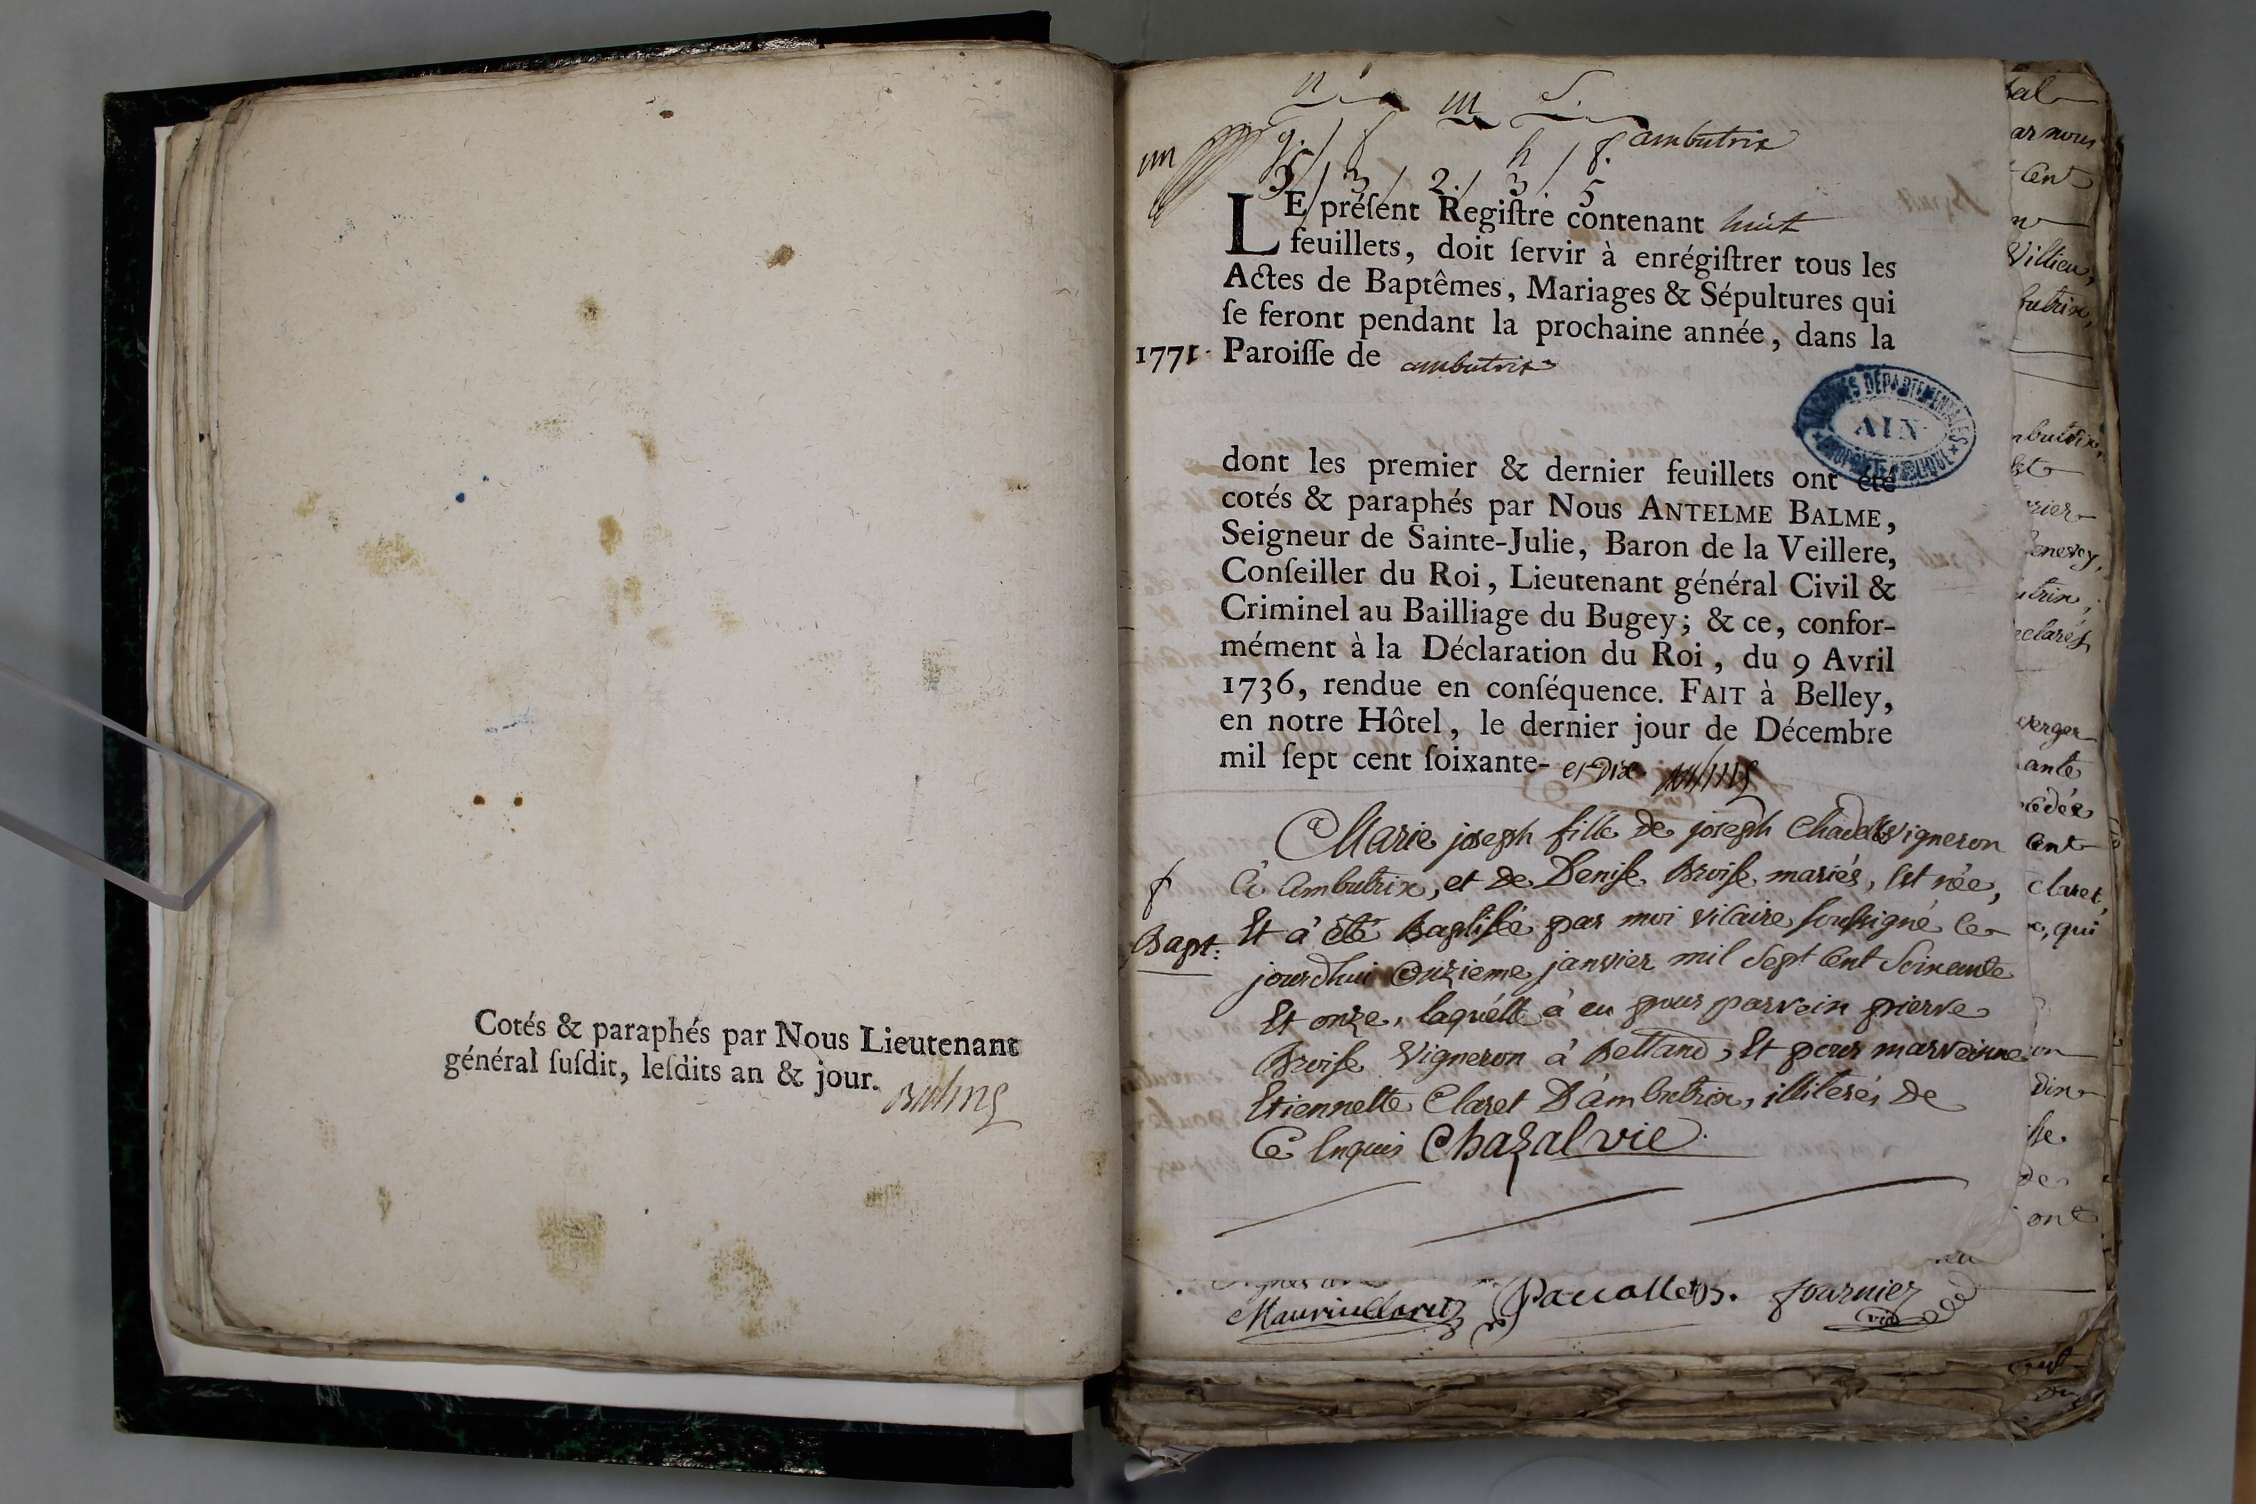 Cotés & paraphés par Nous Lieutenant
général ſuſdit, leſdits an & jour.
n. m S.
un g. f h f. ambutrix
5 / 3 / 2 / 3 / 5
LE préſent Regiſtre contenant huit
feuillets, doit ſervir à enrégiſtrer tous les
Actes de Baptêmes, Mariages & Sépultures qui
ſe feront pendant la prochaine année, dans la
1771. Paroiſſe de ambutrix
ARCHIVES DÉPARTEMENTALES
AIN
dont les premier & dernier feuillets ont été
cotés & paraphés par Nous ANTELME BALME,
Seigneur de Sainte-Julie, Baron de la Veillere,
Conſeiller du Roi, Lieutenant général Civil &
Criminel au Bailliage du Bugey; & ce, confor-
mément à la Déclaration du Roi, du 9 Avril
1736, rendue en conſéquence. FAIT à Belley,
en notre Hôtel, le dernier jour de Décembre
mil ſept cent ſoixante- et dix
Marie joseph fille de joseph vigneron
f à Ambutrix, et de Deniſe Broiſe mariés, Est née,
Bapt: Et à été Baptiſée par moi vicaire souſsigné ce
jourdhui onzieme janvier mil sept cent soixante
Et onze, laquélle à eu pour parrein pierre
Broiſe vigneron à Bettand, Et pour marreinne
Etiennette Claret D'ambutrix, illiterés de
Ce Enquis Chazal vic.
Fournier
vic
ar nous
Cent
Villieu,
butrix,